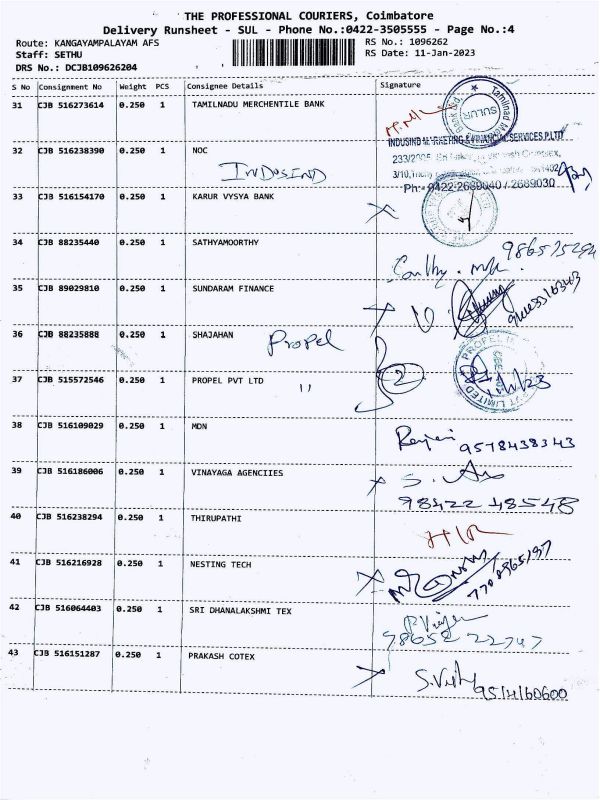 THE PROFESSIONAL COURIERS, Coimbatore
Delivery Runsheet - SUL - Phone No.:0422-3505555 - Page No.:4
Route: KANGAYAMPALAYAM AFS RS No.: 1096262
Staff: SETHU RS Date: 11-Jan-2023
DRS No.: DCJB109626204
S No Consignment No Weight PCS Consignee Details Signature
31 CJB 516273614 0.250 1 TAMILNADU MERCHENTILE BANK
SULUR
INDUSIND MARKETING & FINANCIAL SERVICES P.LTD
32 CJB 516238390 0.250 1 NOC
INDUSIND
Ph:- 0422-2689040 / 2689030
33 CJB 516154170 0.250 1 KARUR VYSYA BANK
34 CJB 88235440 0.250 1 SATHYAMOORTHY
35 CJB 89029810 0.250 1 SUNDARAM FINANCE
36 CJB 88235888 0.250 1 SHAJAHAN
Propel
37 CJB 515572546 0.250 1 PROPEL PVT LTD
" 2
38 CJB 516109029 0.250 1 MDN
9578438343
39 CJB 516186006 0.250 1 VINAYAGA AGENCIIES
98422 48548
40 CJB 516238294 0.250 1 THIRUPATHI
41 CJB 516216928 0.250 1 NESTING TECH
7708965197
42 CJB 516064403 0.250 1 SRI DHANALAKSHMI TEX
98658 22747
43 CJB 516151287 0.250 1 PRAKASH COTEX
9514160600